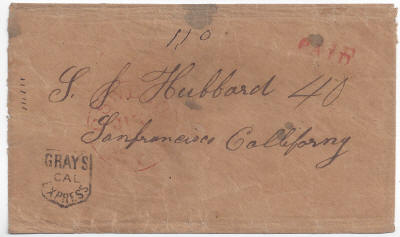 110
PAID
S. J. Hubbard 40
Sanfrancisco Califforny
GRAY'S
CAL
EXPRESS